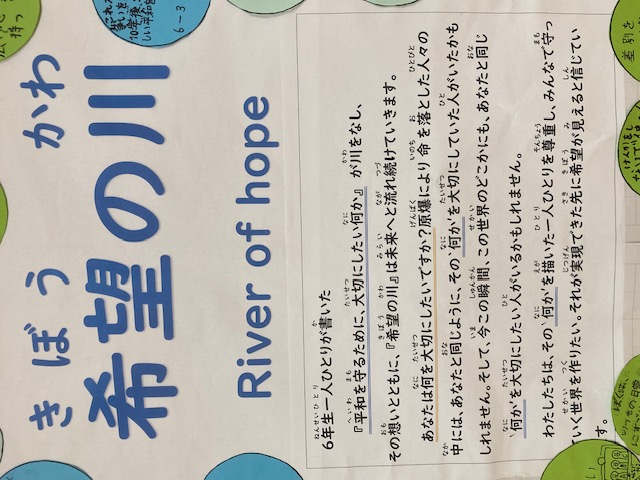 きぼう かわ
希望の川
River of hope
6年生一人ひとりが書いた
『平和を守るために、大切にしたい何か』が川をなし、
その想いとともに、『希望の川』は未来へと流れ続けていきます。
あなたは何を大切にしたいですか？原爆により命を落とした人々の
中には、あなたと同じように、その'何か'を大切にしていた人がいたかも
しれません。そして、今この瞬間、この世界のどこかにも、あなたと同じ
'何か'を大切にしたい人がいるかもしれません。
わたしたちは、その'何か'を描いた一人ひとりを尊重し、みんなで守っ
ていく世界を作りたい。それが実現できた先に希望が見えると信じてい
す。
6-3